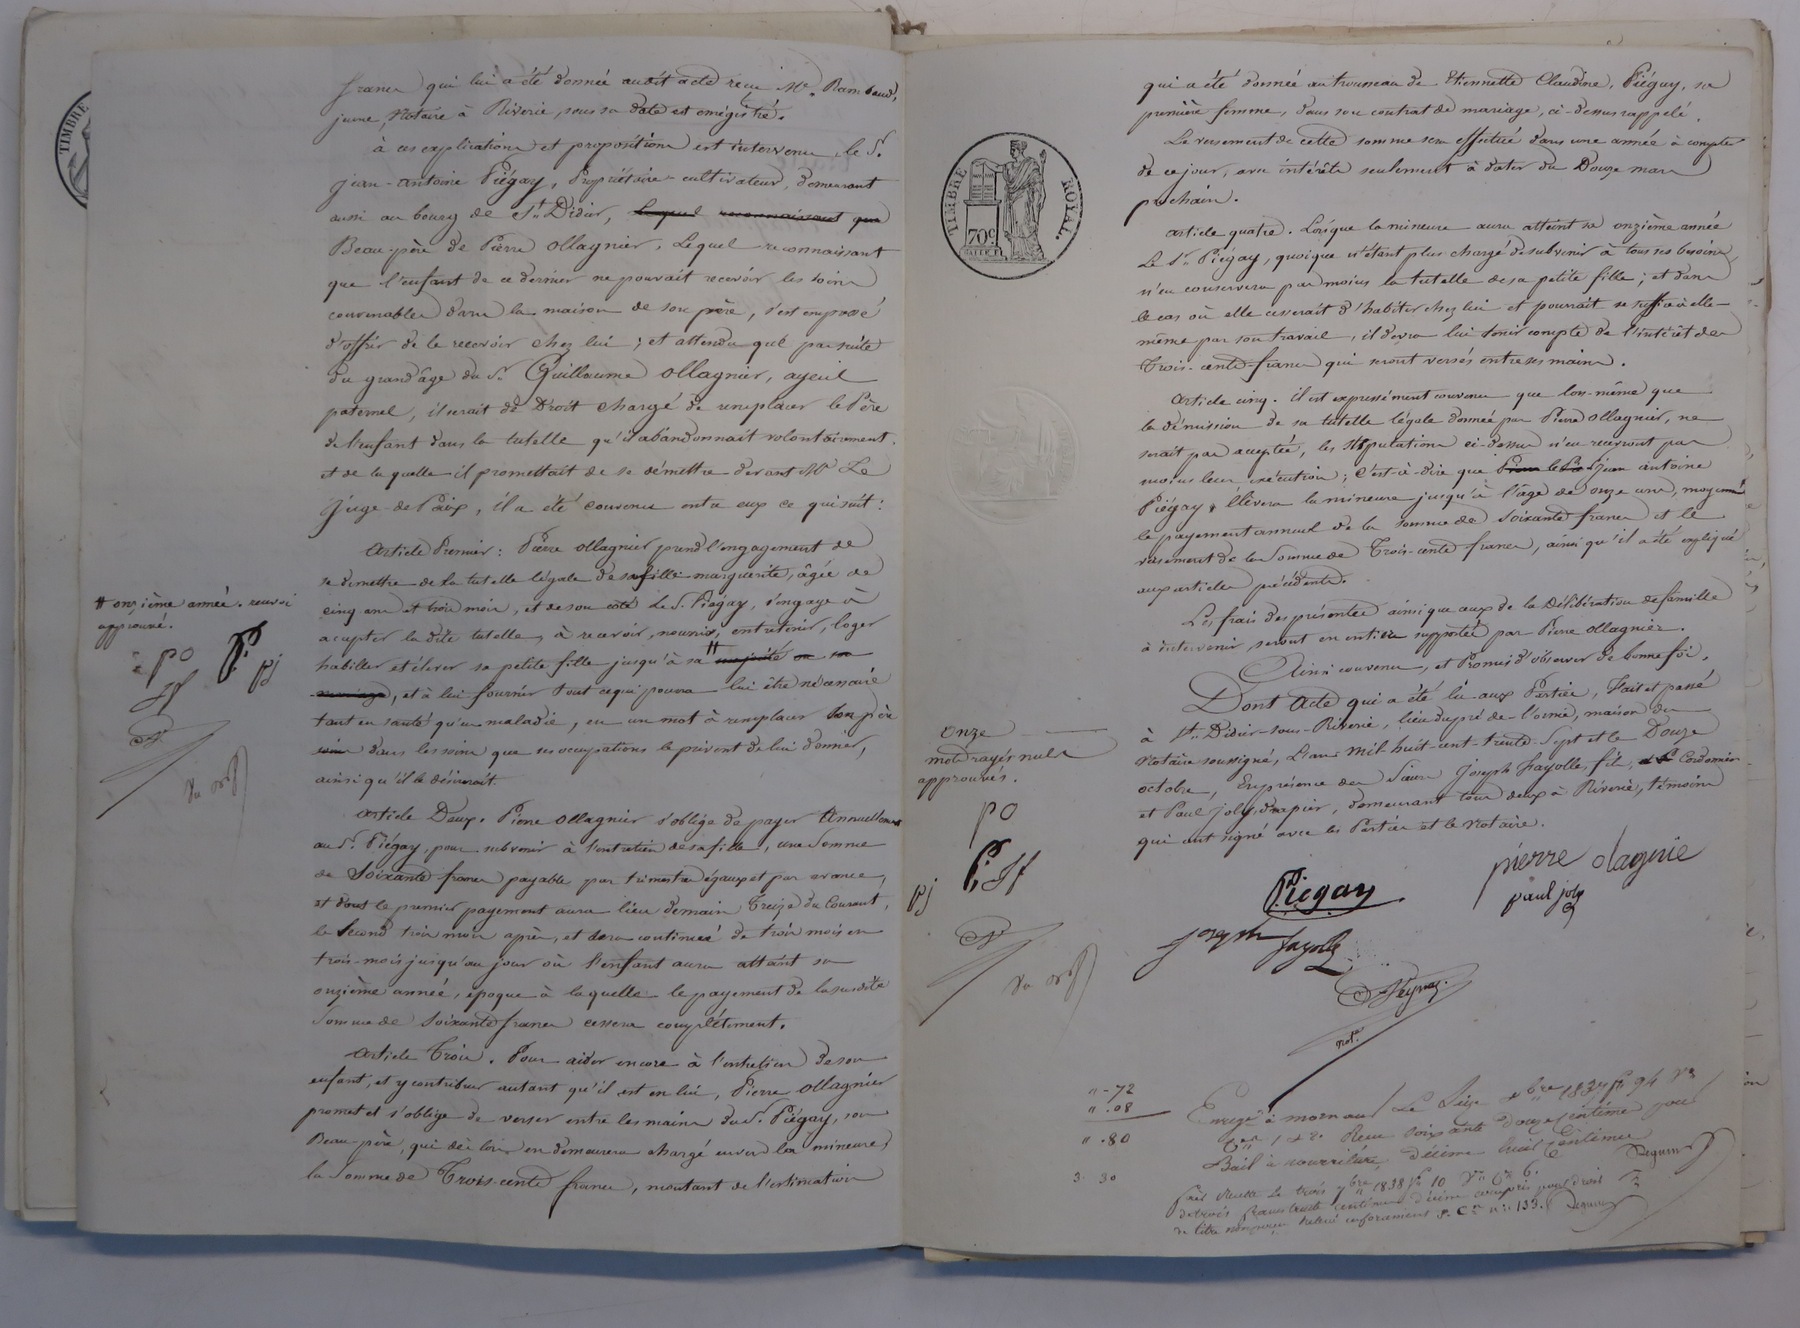 TIMBRE
francs qui lui a été donnée audit acte reçu Me. Rambaud,
jeune, Notaire à Riverie, sous sa date et enrégistré.
à ces explications et propositions est intervenu le S.
Jean-Antoine Piégay, Propriétaire-cultivateur, demeurant
aussi au bourg de St. Didier, lequel reconnaissant que
Beau-père de Pierre Ollagnier, Lequel reconnaissant
que l'enfant de ce dernier ne pouvait recevoir les soins
convenables dans la maison de son père, s'est empressé
d'offrir de le recevoir chez lui ; et attendu que par suite
du grand âge du S. Guillaume Ollagnier, ayeul
paternel, il serait de Droit chargé de remplacer le Père
de l'enfant dans la tutelle qu'il abandonnait volontairement,
et de laquelle il promettait de se démettre devant Mr Le
Juge-de-Paix, il a été convenu entre eux ce qui suit :
Article Premier : Pierre Ollagnier prend l'engagement de
se demettre de la tutelle légale de sa fille marguerite, âgée de
cinq ans et trois mois, et de son coté Le S. Piégay, s'engage à
accepter la dite tutelle, à recevoir, nourrir, entretenir, loger
habiller et élever sa petite fille jusqu'à sa # majorité ou son
mariage, et à lui fournir tout ce qui pourra lui être nécessaire
tant en santé qu'en maladie, en un mot à remplacer son père
dans les soins que ses occupations le privent de lui donner,
ainsi qu'il le désirerait.
# onzième année. renvoi
approuvé.
PO
P.
pj
JF
Article Deux. Pierre Ollagnier s'oblige de payer Annuellement
au S. Piégay, pour subvenir à l'entretien de sa fille, une Somme
de Soixante francs payable par trimestres égaux et par avance,
et dont le premier payement aura lieu demain Treize du Courant,
le Second trois mois après, et sera continué de trois mois en
trois-mois jusqu'au jour où l'enfant aura atteint sa
onzième année, époque à laquelle le payement de la susdite
Somme de Soixante francs cessera complètement.
Article Trois. Pour aider encore à l'entretien de son
enfant, et y contribuer autant qu'il est en lui, Pierre Ollagnier
promet et s'oblige de verser entre les mains du S. Piégay, son
Beau-père, qui dès lors en demeurera chargé envers la mineure,
la Somme de Trois-cents francs, montant de l'estimation
qui a été donnée au trousseau de Etiennette Claudine Piégay, sa
première femme, dans son contrat de mariage, ci-dessus rappelé.
Le versement de cette somme sera effectué dans une année à compter
de ce jour, avec intérêts seulement à dater du Douze mars
prochain.
TIMBRE ROYAL.
70c.
Article quatre. Lorsque la mineure aura atteint sa onzième année
Le Sr. Piégay, quoique n'étant plus chargé de subvenir à tous ses besoins,
n'en conservera pas moins la tutelle de sa petite fille ; et dans
le cas où elle cesserait d'habiter chez lui et pourrait se suffire à elle-
même par son travail, il devra lui tenir compte de l'intérêt des
Trois-cents-francs qui seront versés entre ses mains.
Article cinq. il est expressément convenu que lors-même que
la démission de sa tutelle légale donnée par Pierre Ollagnier, ne
serait pas acceptée, les stipulations ci-dessus n'en recevront pas
moins leur exécution ; C'est-à-dire que Jean antoine
Piégay élèvera la mineure jusqu'à l'âge de onze ans, moyennt
le payement annuel de la somme de soixante francs et le
versement de la Somme de Trois-cents francs, ainsi qu'il a été expliqué
aux articles précédents.
Les frais des présentes ainsi que ceux de la Délibération de famille
à intervenir, seront en entier supportés par Pierre Ollagnier.
Ainsi convenu, et Promis d'observer de bonne foi.
Dont Acte qui a été lu aux Parties, Fait et passé
à St. Didier-sous-Riverie, lieu du pré de l'orme, maison du
Notaire soussigné, L'an Mil-huit-cent-trente-Sept et le Douze
octobre, En présence des Sieurs Joseph Fayolle, fils, Cordonnier
et Paul Joly, drapier, demeurant tous deux à Riverie, témoins
qui ont signé avec les Parties et le Notaire.
Onze
mots rayés nuls
approuvés.
PO
P. JF
pj
pierre olagnie
Piegay
paul joly
joseph fayolle
not.
" - 72
" . 08
" . 80
3. 30
Enregé à mornant Le Seize 8bre 1837 fo 94 Vo
Cen 1 et 2. Reçu soixante douze centimes pour
Bail à nourriture, décime huit centimes